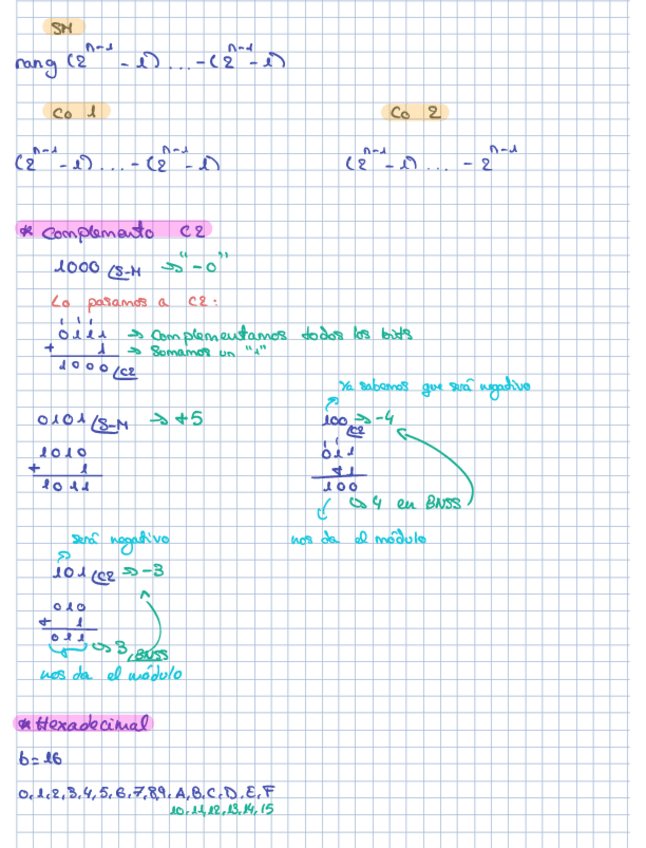 SM
rang (2^(n-1) - 1) ... -(2^(n-1) - 1)
Co 1
Co 2
(2^(n-1) - 1) ... - (2^(n-1) - 1)
(2^(n-1) - 1) ... - 2^(n-1)
* Complemento C2
1000 (S-M => "-0"
Lo pasamos a C2:
0111 => Complementamos todos los bits
+ 1 => Somamos un "1"
1000 (C2
Ya sabemos que será negativo
0101 (S-M => +5
100 (C2 => -4
1010
+ 1
1011
011
+1
100
=> 4 en BNSS
nos da el módulo
será negativo
101 (C2 => -3
010
+ 1
011 => 3, BNSS
nos da el módulo
* Hexadecimal
b=16
0,1,2,3,4,5,6,7,8,9,A,B,C,D,E,F
10,11,12,13,14,15